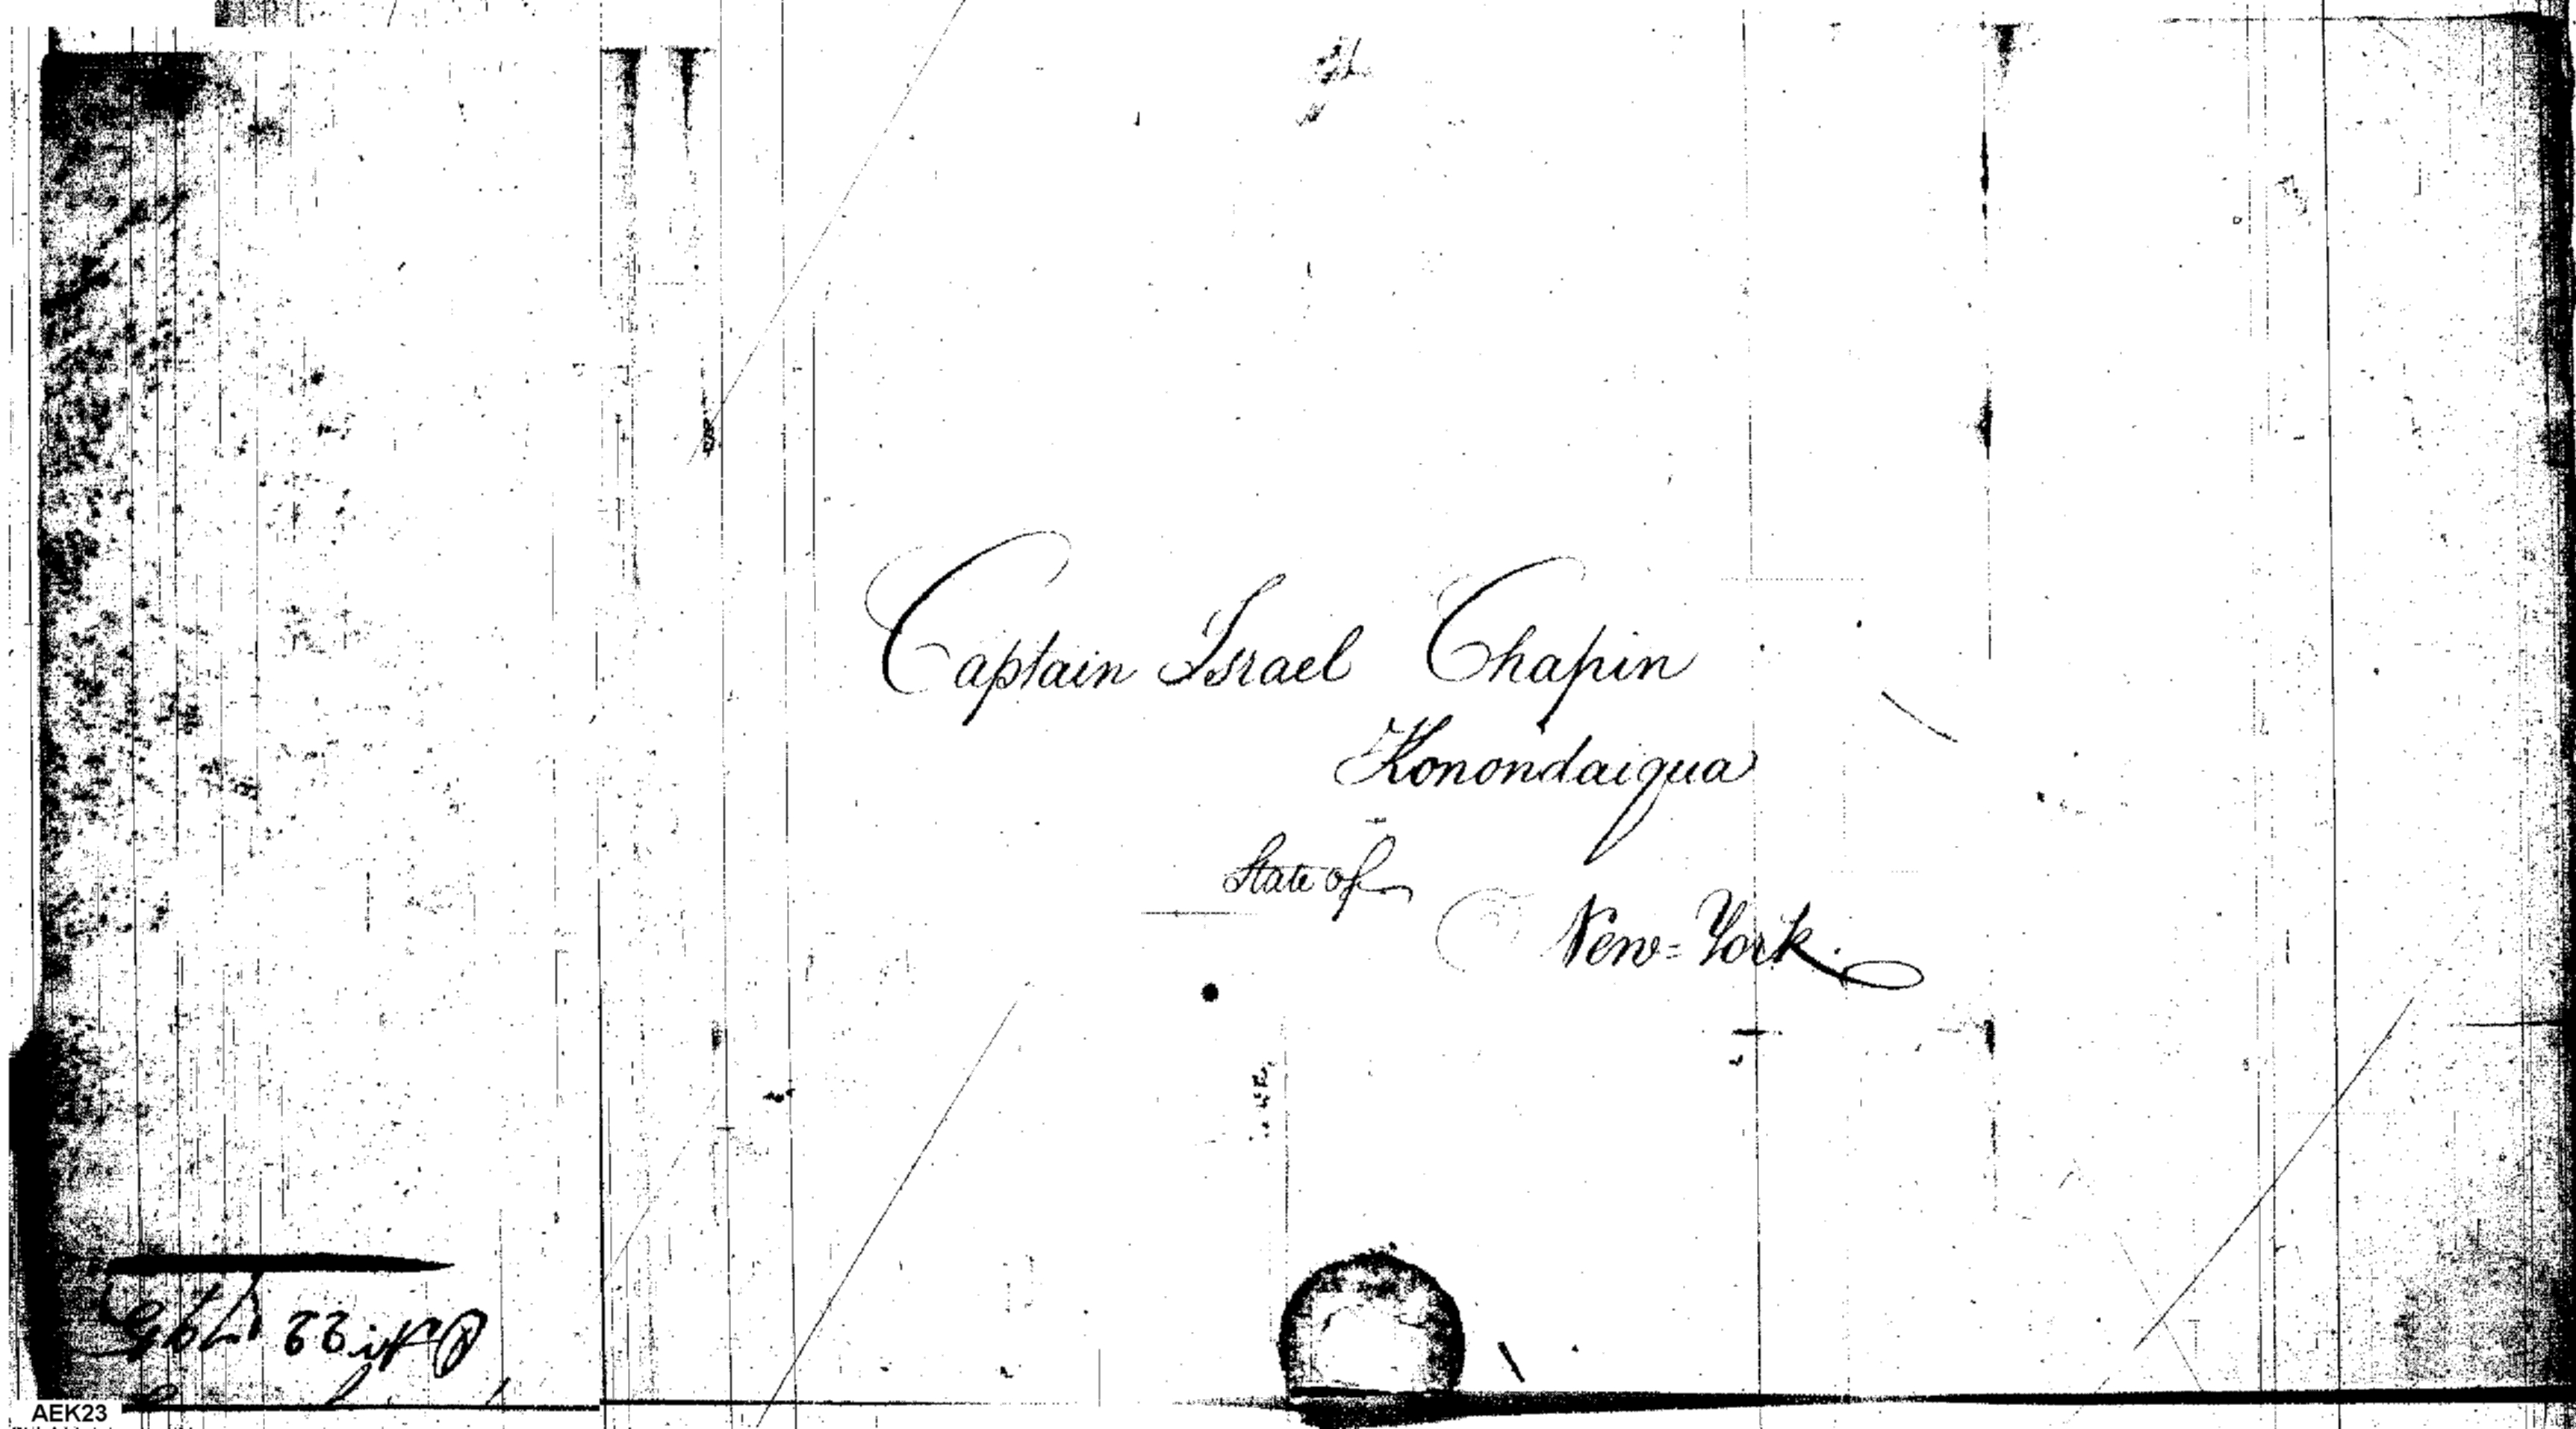 Captain Israel Chapin
Konondaiqua
State of
New=York.
1795
AEK23